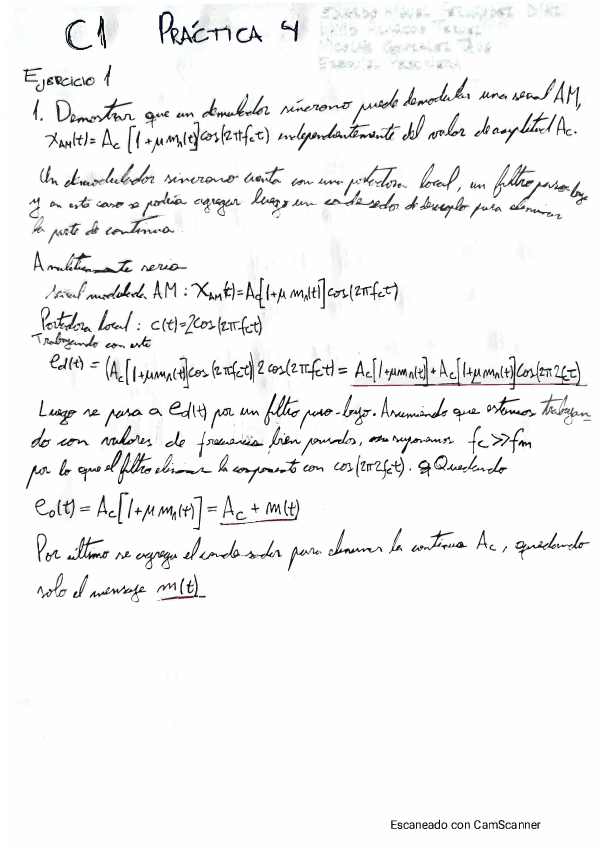 C1 PRÁCTICA 4
EJERCICIO 1
1. Demostrar que un demulador síncrono puede demodular una señal AM,
x_AM(t) = Ac [1+μ m_n(t)] cos(2πfct) independientemente del valor de amplitud Ac.
Un dimodulador sincrono cuenta con una portadora local, un filtro paso-bajo
y en este caso se podría agregar luego un condesador de desacoplo para eliminar
la parte de continua.
Analíticamente seria
señal modulada AM : x_AM(t) = Ac[1+μ m_n(t)] cos(2πfct)
Portadora local : c(t) = 2cos(2πfct)
Trabajando con esto
ed(t) = (Ac[1+μm_n(t)] cos(2πfct)) 2 cos(2πfct) = Ac[1+μm_n(t)] + Ac[1+μm_n(t)] cos(2π2fct)
Luego se pasa a ed(t) por un filtro paso-bajo. Asumiendo que estamos trabajan-
do con valores de frecuencia bien pensados, suponemos fc >> fm
por lo que el filtro elimina la componente con cos(2π2fct). Quedando
eo(t) = Ac[1+μ m_n(t)] = Ac + m(t)
Por último se agrega el condesador para eliminar la continua Ac, quedando
solo el mensaje m(t)
Escaneado con CamScanner